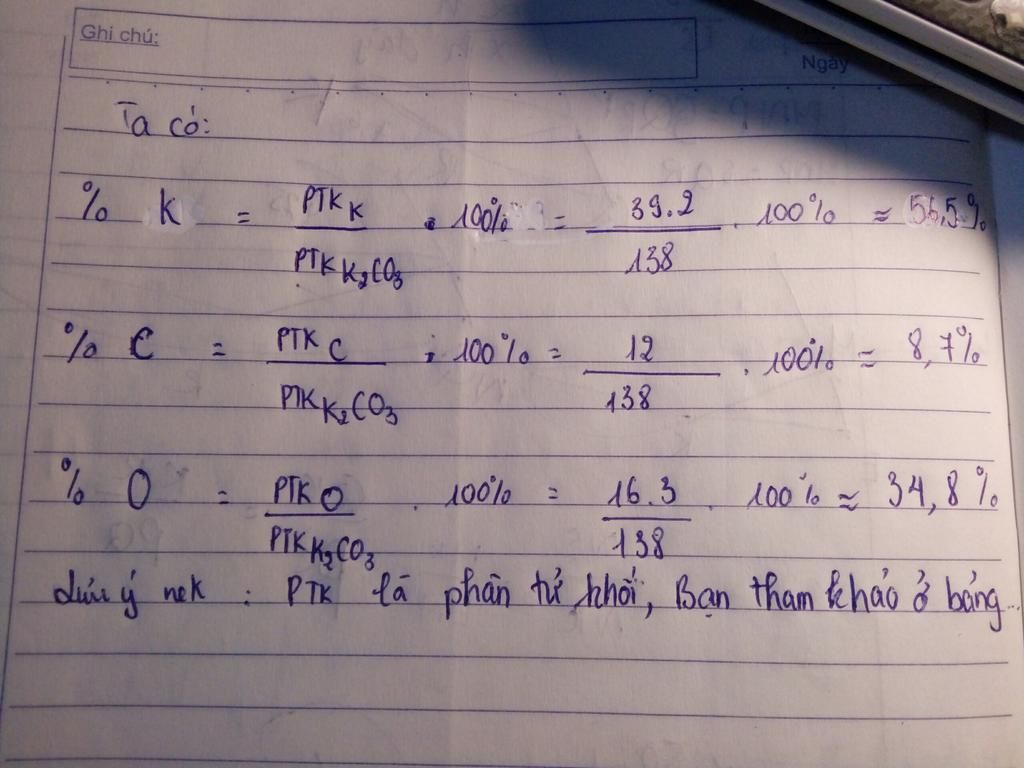 Ghi chú:
Ngày
Ta có:
% K = PTK K / PTK K₂CO₃ . 100% = 39.2 / 138 . 100% ≈ 56,5%
% C = PTK C / PTK K₂CO₃ . 100% = 12 / 138 . 100% = 8,7%
% O = PTK O / PTK K₂CO₃ . 100% = 16.3 / 138 . 100% ≈ 34,8%
Lưu ý nek : PTK là phân tử khối, Bạn tham khảo ở bảng...